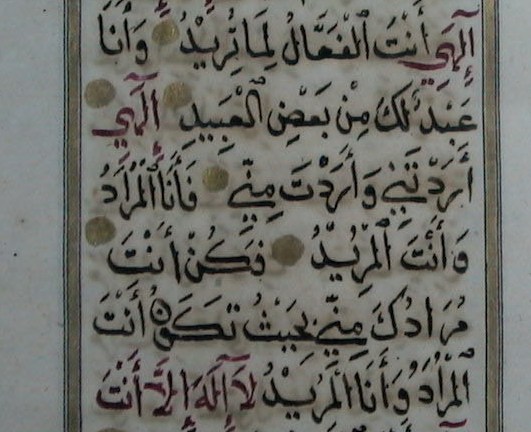 إِلَهِي أَنْتَ الْفَعَّالُ لِمَا تُرِيْدُ وَأَنَا
عَبْدٌ لَكَ مِنْ بَعْضِ الْعَبِيدِ إِلَهِي
أَرَدْتَنِي وَأَرَدْتَ مِنِّي فَأَنَا الْمُرَادُ
وَأَنْتَ الْمُرِيْدُ فَكُنْ أَنْتَ
مُرَادَكَ مِنِّي بِحَيْثُ تَكُونُ أَنْتَ
الْمُرَادُ وَأَنَا الْمُرِيْدُ لَا إِلَهَ إِلَّا أَنْتَ